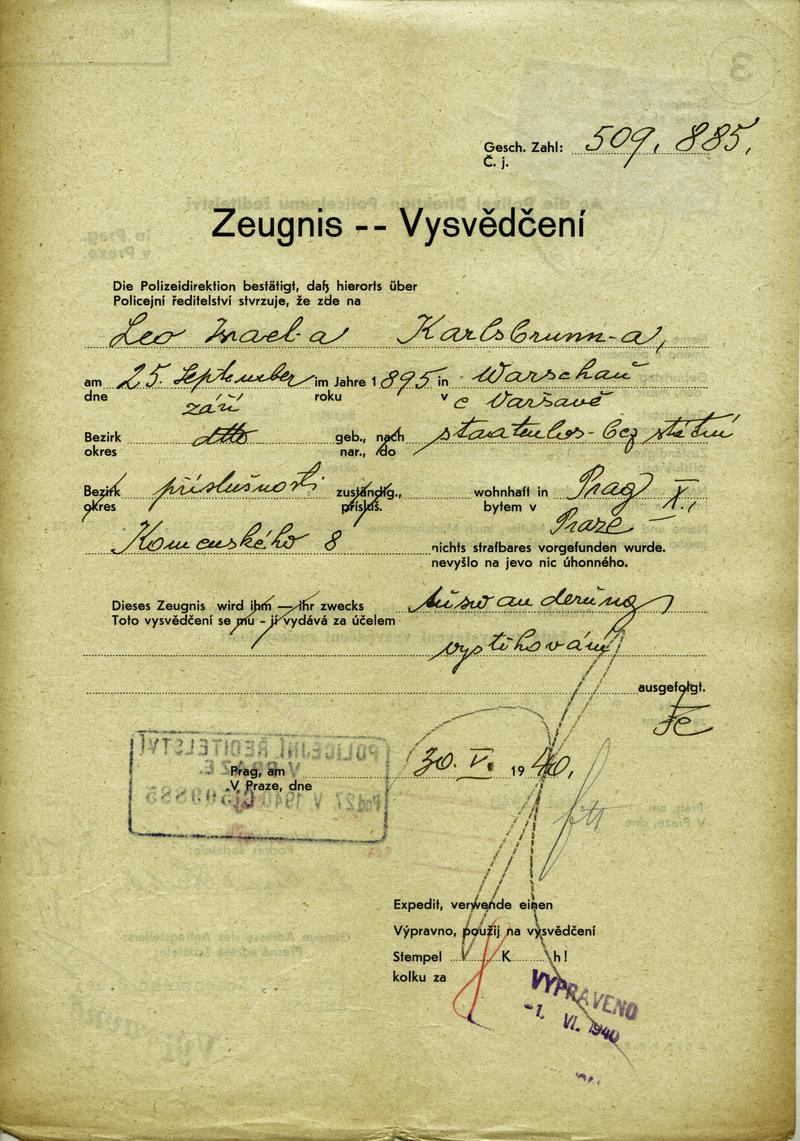 Gesch. Zahl: 509.885.
Č. j.
Zeugnis -- Vysvědčení
Die Polizeidirektion bestätigt, daß hierorts über
Policejní ředitelství stvrzuje, že zde na
Leo Israel-a Karlsbrunn-a,
am 25. September im Jahre 1895 in Warschau
dne září roku v Varšavě
Bezirk ditto geb., nach staatenlos - bez státní
okres nar., do
Bezirk příslušnosti zuständig., wohnhaft in Prag X.,
okres přísluš. bytem v Praze
Komenského 8 nichts strafbares vorgefunden wurde.
nevyšlo na jevo nic úhonného.
Dieses Zeugnis wird ihm — ihr zwecks Auswanderung
Toto vysvědčení se mu - jí vydává za účelem
vystěhování
ausgefolgt.
Prag, am 30. V. 1940.
V Praze, dne
POLICEJNÍ ŘEDITELSTVÍ
V PRAZE.
27 V 1940 509885
Expedit, verwende einen
Výpravno, použij na vysvědčení
Stempel K h!
kolku za
VYPRAVENO
-1. VI. 1940